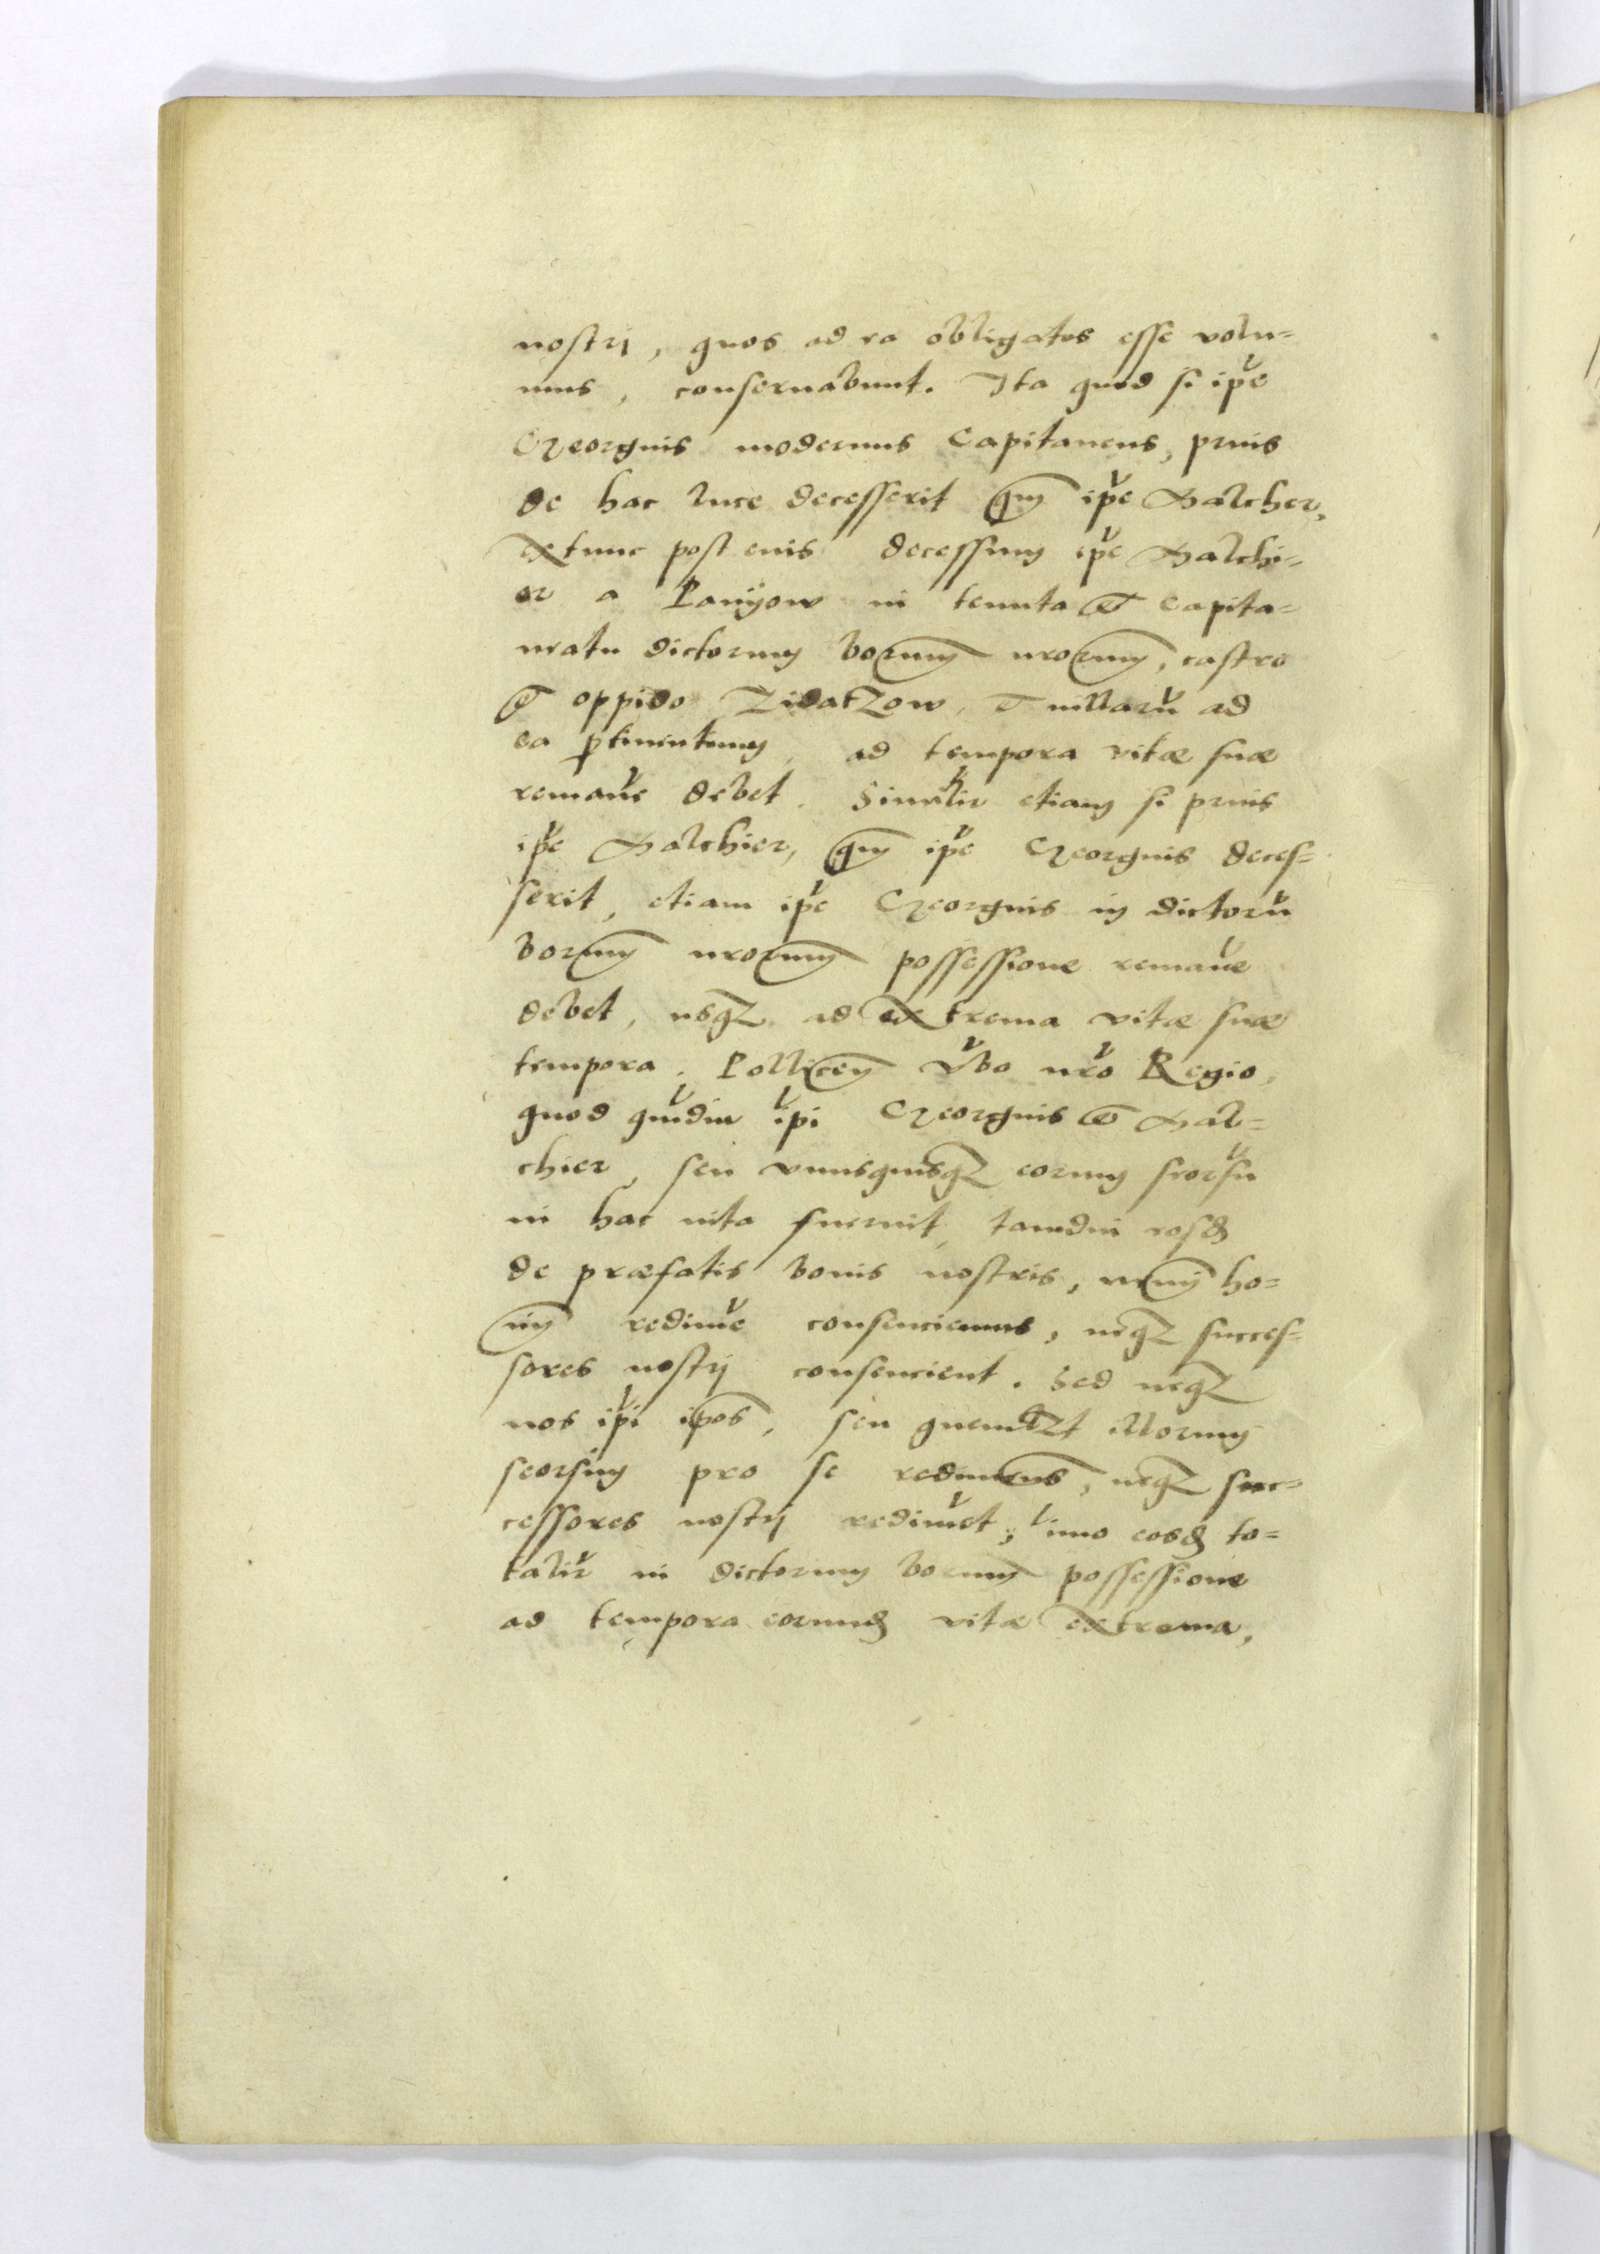 nostrj, quos ad ea obligatos esse volu=
mus, conseruabunt. Ita quod si ip̃e
Georgius modernus Capitaneus, prius
de hac luce decesserit q̃m ip̃e Balcher,
extunc post eius decessum ip̃e Balchi=
er a Panyow in tenuta et Capita=
neatu dictorum bonorum nrorum, castro
et oppido Zidatzow, et uillarũ ad
ea ꝑtinentium, ad tempora vitæ suæ
remañe debet. Similir etiam si prius
ip̃e Balchier, q̃m ip̃e Georgius deces=
serit, etiam ip̃e Georgius in dictorũ
bonorum nrorum possessione remañe
debet, usqꝫ ad extrema vitæ suæ
tempora. Pollicem̃ v̆bo nr̃o Regio,
quod qũdiu ip̃i Georgius et Bal=
chier, seu vnusquisqꝫ eorum seorsũ
in hac uita fuerint, tamdiu eosđ
de præfatis bonis nostris, nemĩ ho=
im̃ redim̃e consenciemus, neqꝫ succes=
sores nostrj consencient. Sed neqꝫ
nos ip̃i ip̃os, seu quemlꝫt illorum
seorsim pro se redimem̃s, neqꝫ suc=
cessores nostrj redimẽt, imo eosđ to=
talir̃ in dictorum bonorum possessione
ad tempora eorunđ vitæ extrema,